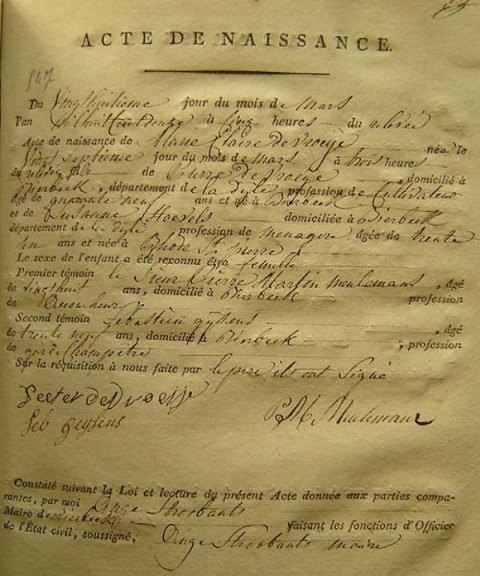 ACTE DE NAISSANCE.
Du Vingthuitieme jour du mois de mars
l'an mil huit cent douze à cinq heures du relevée
Acte de naissance de Marie Claire de Vroeije née le
Vingt septieme jour du mois de mars à trois heures
de Pierre de Vroeije domicilié à
Bierbeek, département de la dyle, profession de Cultivateur
âgé de quarante neuf ans et né à Bierbeek
et de Susanne domiciliée à Bierbeek
département de la Dyle, profession de menagere âgée de trente
un ans et née à Rhode St Pierre
Le sexe de l'enfant a été reconnu être femelle
Premier témoin le Sieur Pierre Martin meulemans, âgé
de vingthuit ans, domicilié à Bierbeek profession
de
Second témoin Sebastien gijsens, âgé
de trente neuf ans, domicilié à Bierbeek, profession
de garde Champetre
Sur la réquisition à nous faite par le pere ils ont Signé
Peeter de Vroeije
P. M. Meulemans
Seb geysens
Constaté suivant la Loi et lecture du présent Acte donnée aux parties compa-
rantes, par moi Ange Stroobants
Maire de Bierbeek faisant les fonctions d'Officier
de l'État civil, soussigné;
Ange Stroobants maire